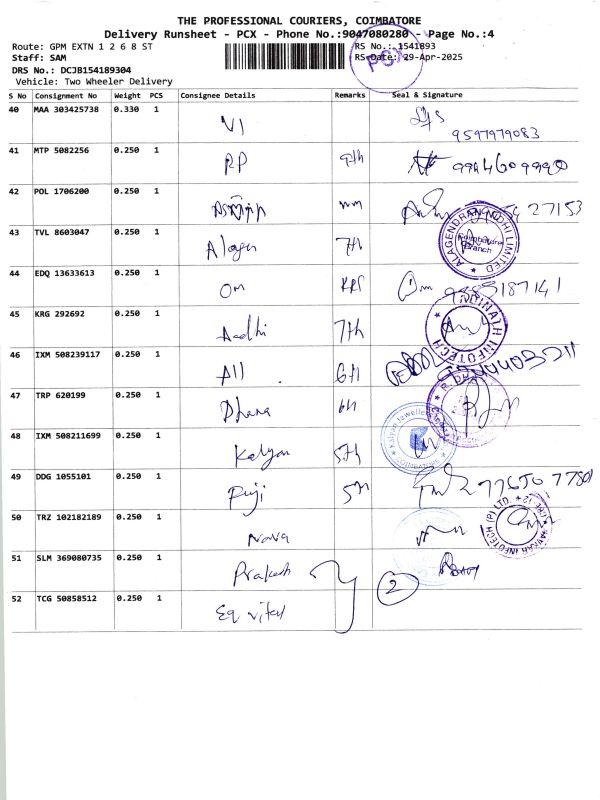 THE PROFESSIONAL COURIERS, COIMBATORE
Delivery Runsheet - PCX - Phone No.:9047080280 - Page No.:4
Route: GPM EXTN 1 2 6 8 ST
RS No.: 1541893
Staff: SAM
RS Date: 29-Apr-2025
PCX
DRS No.: DCJB154189304
Vehicle: Two Wheeler Delivery
S No Consignment No Weight PCS Consignee Details Remarks Seal & Signature
40 MAA 303425738 0.330 1 VI
9597979083
41 MTP 5082256 0.250 1 RP 9th
42 POL 1706200 0.250 1 27153
43 TVL 8603047 0.250 1 Alagen 7th
ALAGENDRAN LIMITED
Coimbatore
Branch
44 EDQ 13633613 0.250 1 Om Om 87141
45 KRG 292692 0.250 1 Aadhi 7th
INFOTECH
46 IXM 508239117 0.250 1 All 6th
47 TRP 620199 0.250 1 Dhana 6th
48 IXM 508211699 0.250 1 Kalyan 5th
Kalyan Jewellers
COIMBATORE
49 DDG 1055101 0.250 1 Fuji 5th
50 TRZ 102182189 0.250 1 Nava
INFOTECH (P) LTD.
51 SLM 369080735 0.250 1 Prakesh
2
52 TCG 50858512 0.250 1 Eq vital